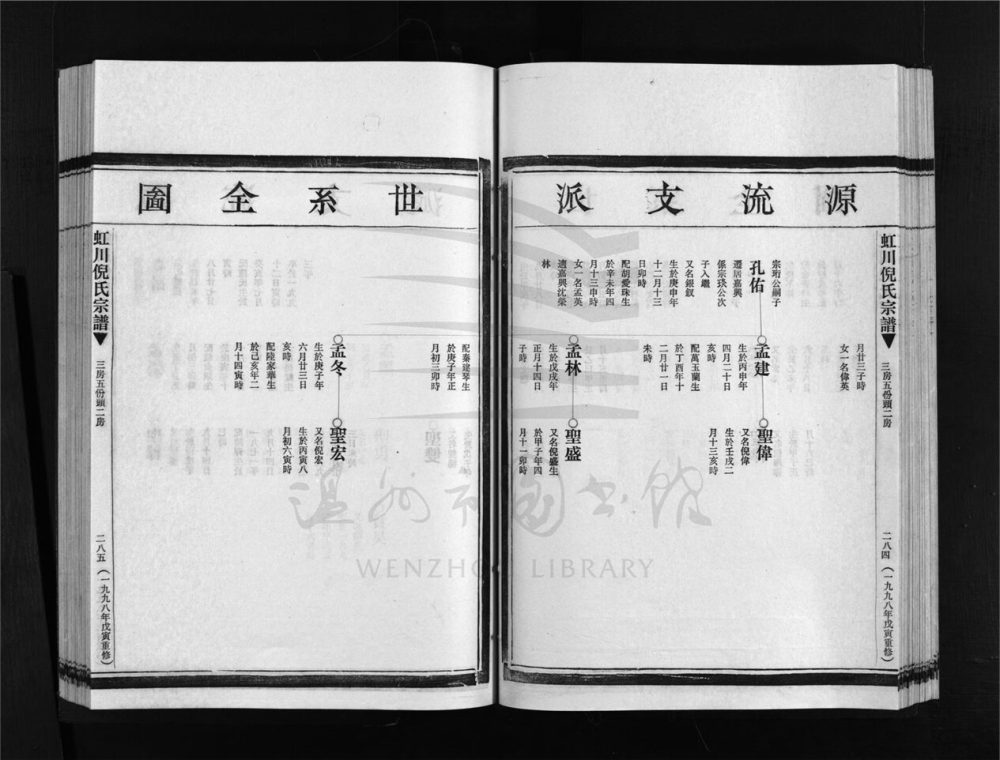 源流支派
虹川倪氏宗譜
三房五份頭二房
二八四(一九九八年戊寅重修)
月廿三子時
女一名偉英
宗珩公嗣子
孔佑
遷居嘉興
係宗琰公次
子入繼
又名銀釵
生於庚申年
十二月十三
日卯時
配胡愛珠生
於辛未年四
月十三申時
女一名孟英
適嘉興沈榮
林
孟建
生於丙申年
四月二十日
亥時
配萬玉蘭生
於丁酉年十
二月廿一日
未時
孟林
生於戊戌年
正月十四日
子時
聖偉
又名倪偉
生於壬戌二
月十三亥時
聖盛
又名倪盛生
於甲子年四
月十一卯時
世系全圖
配秦建琴生
於庚子年正
月初三卯時
孟冬
生於庚子年
六月廿三日
亥時
配陸家華生
於己亥年二
月十四寅時
聖宏
又名倪宏
生於丙寅八
月初六寅時
虹川倪氏宗譜
三房五份頭二房
二八五(一九九八年戊寅重修)
溫州市圖書館
WENZHOU LIBRARY